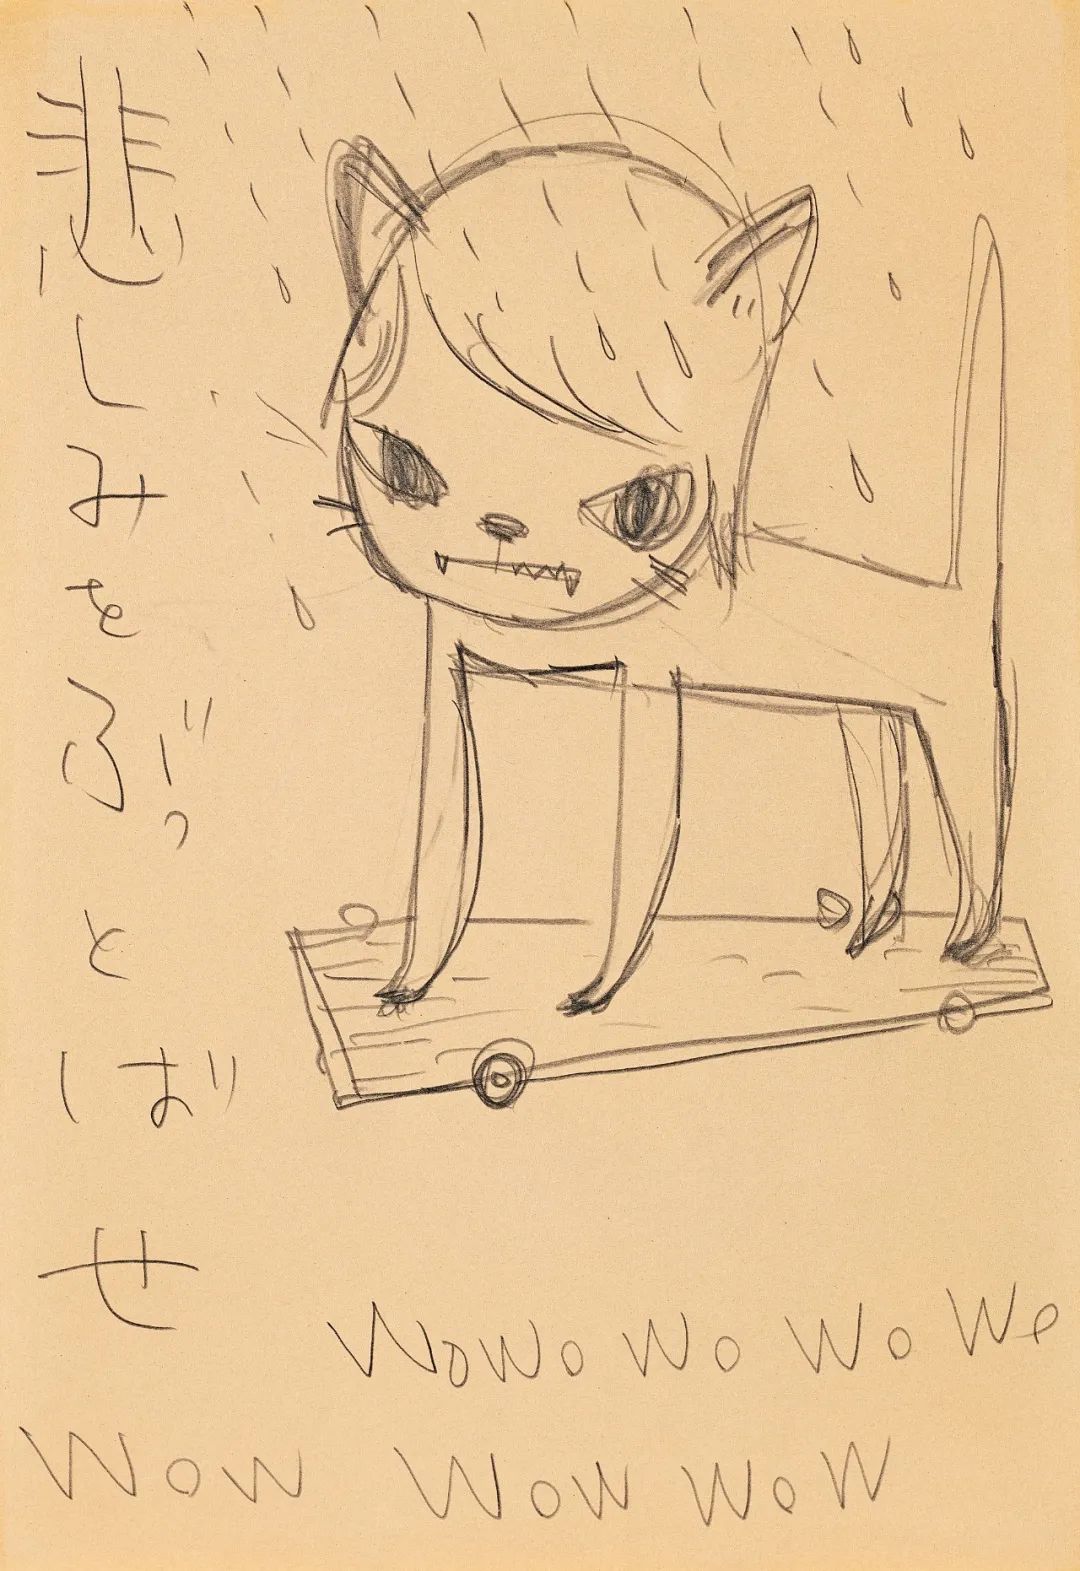 悲しみをぶっとばせ
WoWoWo Wo We
Wow WoW WoW